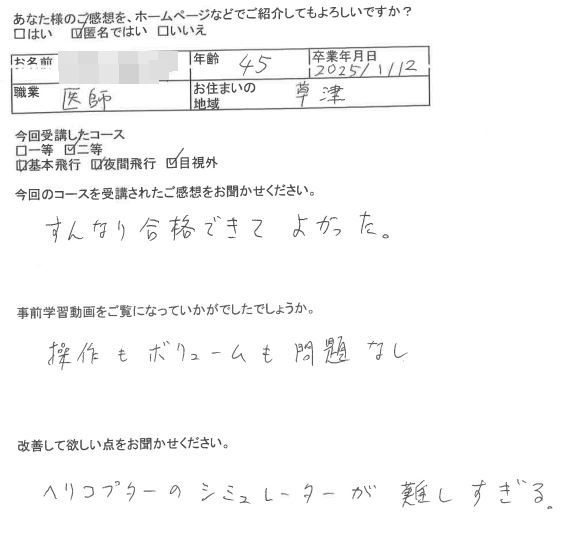 あなた様のご感想を、ホームページなどでご紹介してもよろしいですか?
□はい ☑匿名ではい □いいえ
お名前 年齢 45 卒業年月日 2025/1/12
職業 医師 お住まいの地域 草津
今回受講したコース
□一等 ☑二等
☑基本飛行 ☑夜間飛行 ☑目視外
今回のコースを受講されたご感想をお聞かせください。
すんなり合格できてよかった。
事前学習動画をご覧になっていかがでしたでしょうか。
操作もボリュームも問題なし
改善して欲しい点をお聞かせください。
ヘリコプターのシミュレーターが難しすぎる。